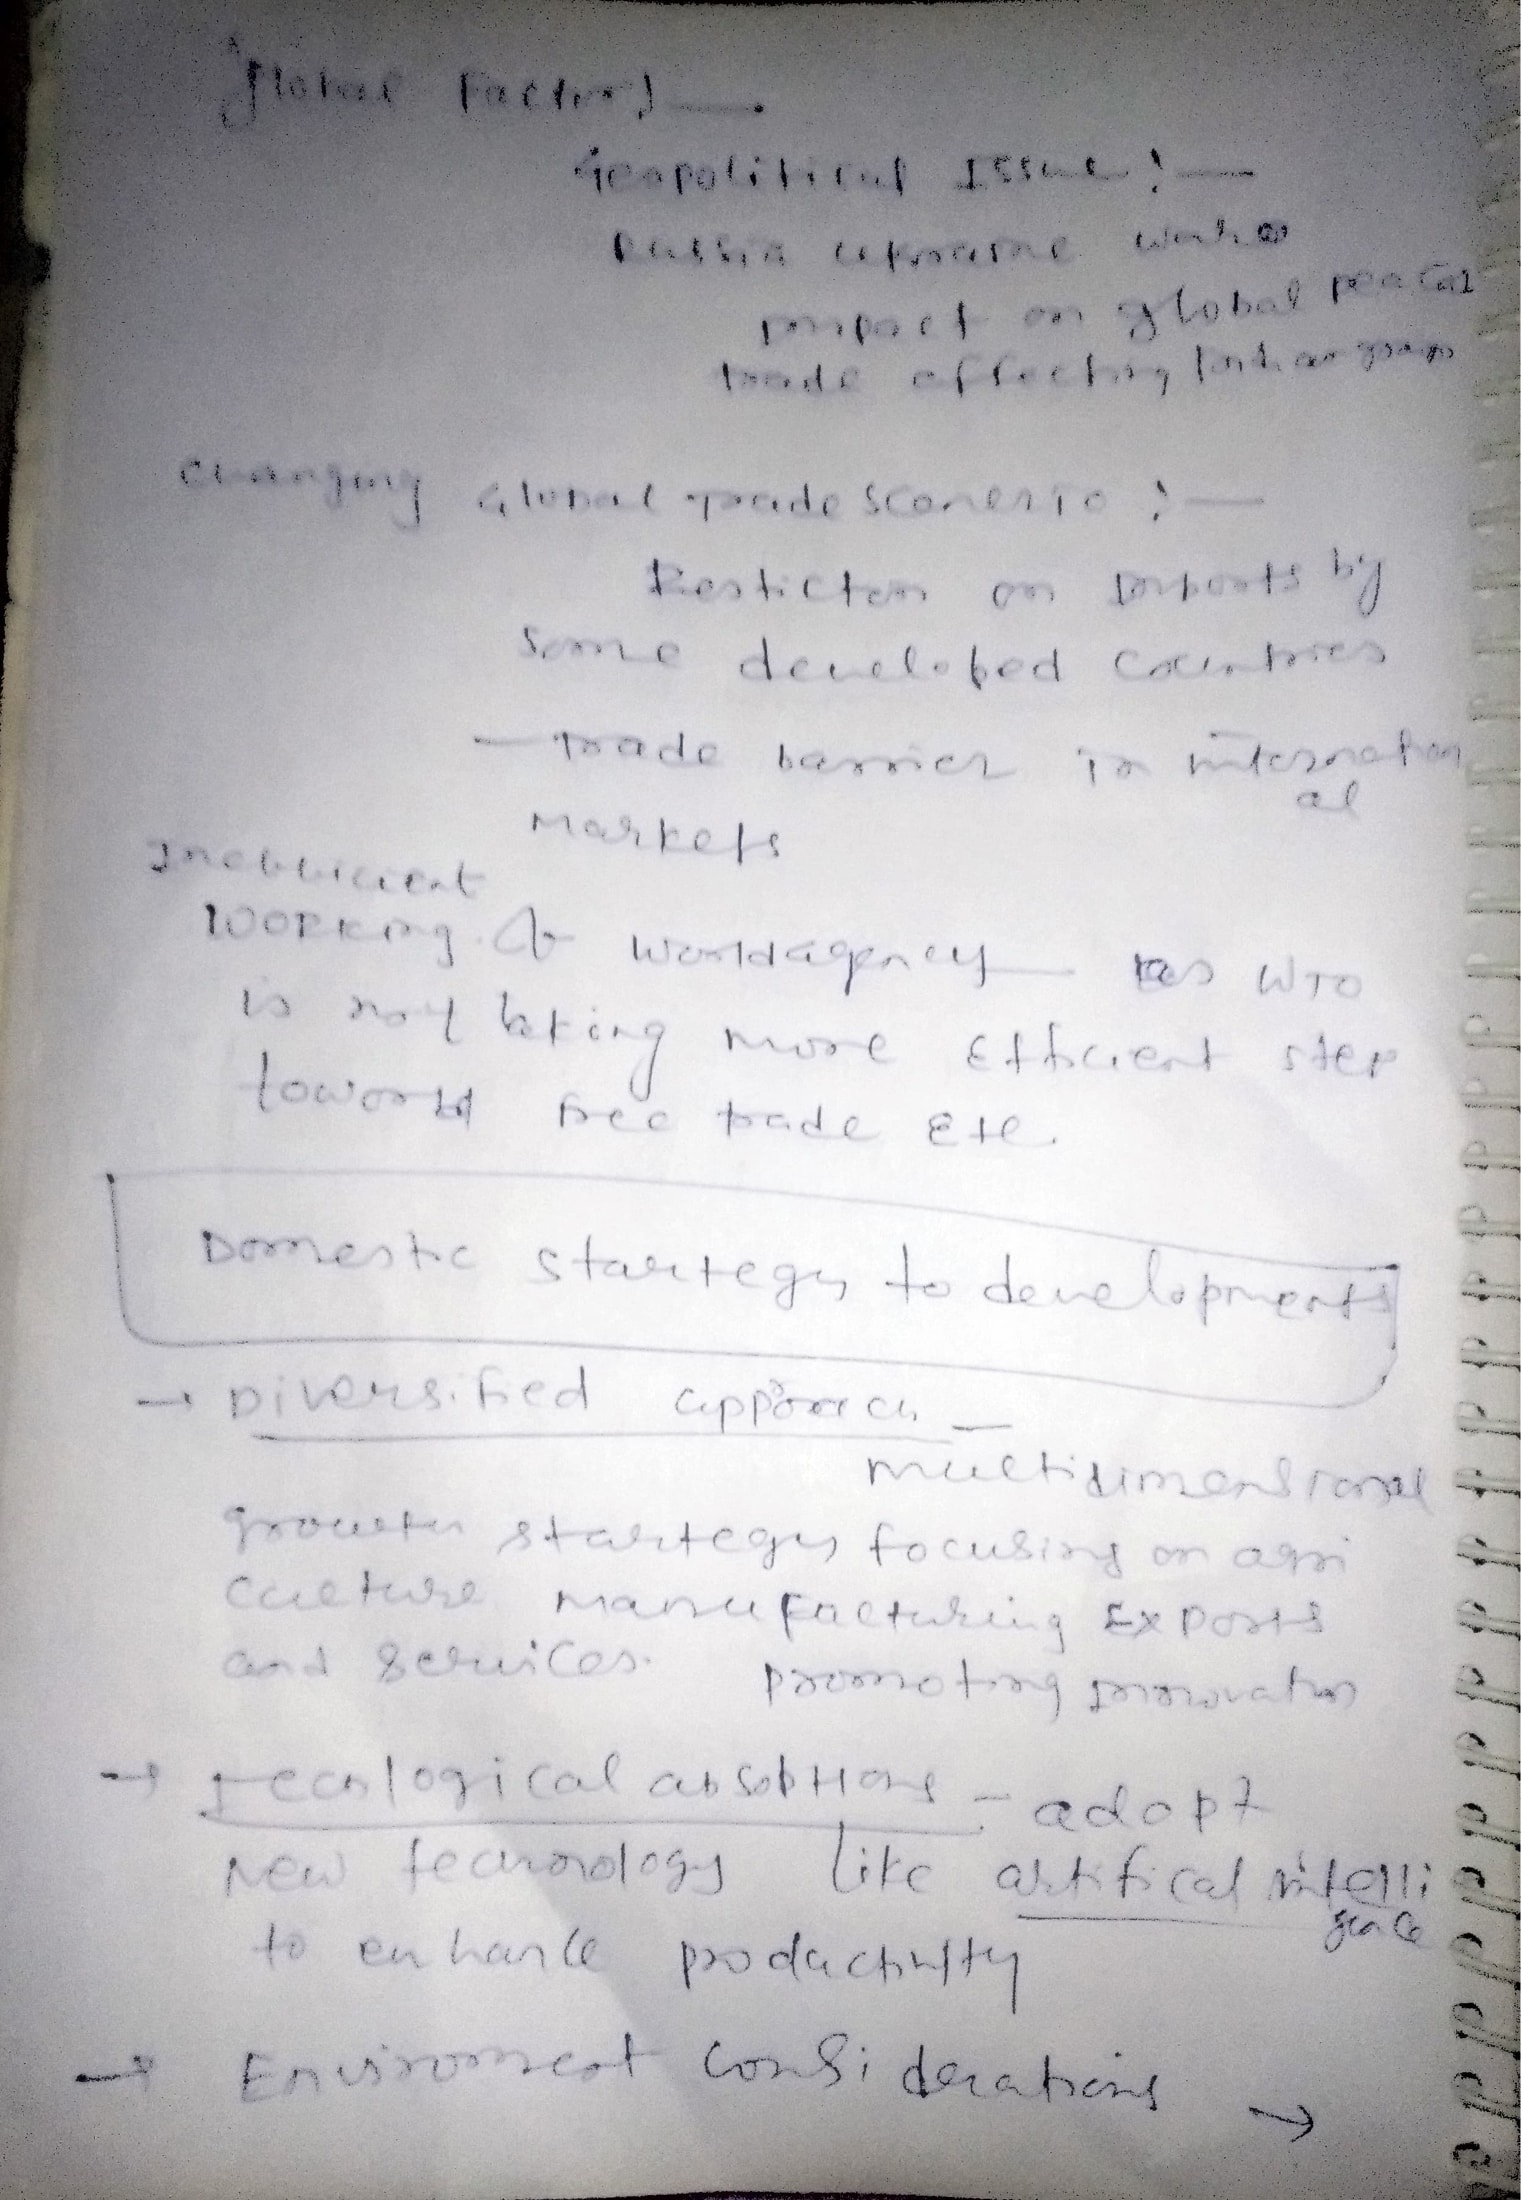 Global Factors —
Geopolitical Issue : —
Russia Ukraine
impact on global
trade affecting Indian
Changing Global Trade Scenerio : —
Restiction on Imports by
Some developed countries
— Trade barrier in internation
al
Markets
Inefficient
Working of world agency — as WTO
is not taking more Efficient step
toward free trade Etc.
Domestic startegy to developments
→ Diversified approach —
multidimensional
growth startegy focusing on agri
culture manufacturing Exports
and services. promoting innovation
→ Tecnological absobtions — adopt
New technology like artifical intelli
gence
to enhance productivity
→ Enviroment Considerations →